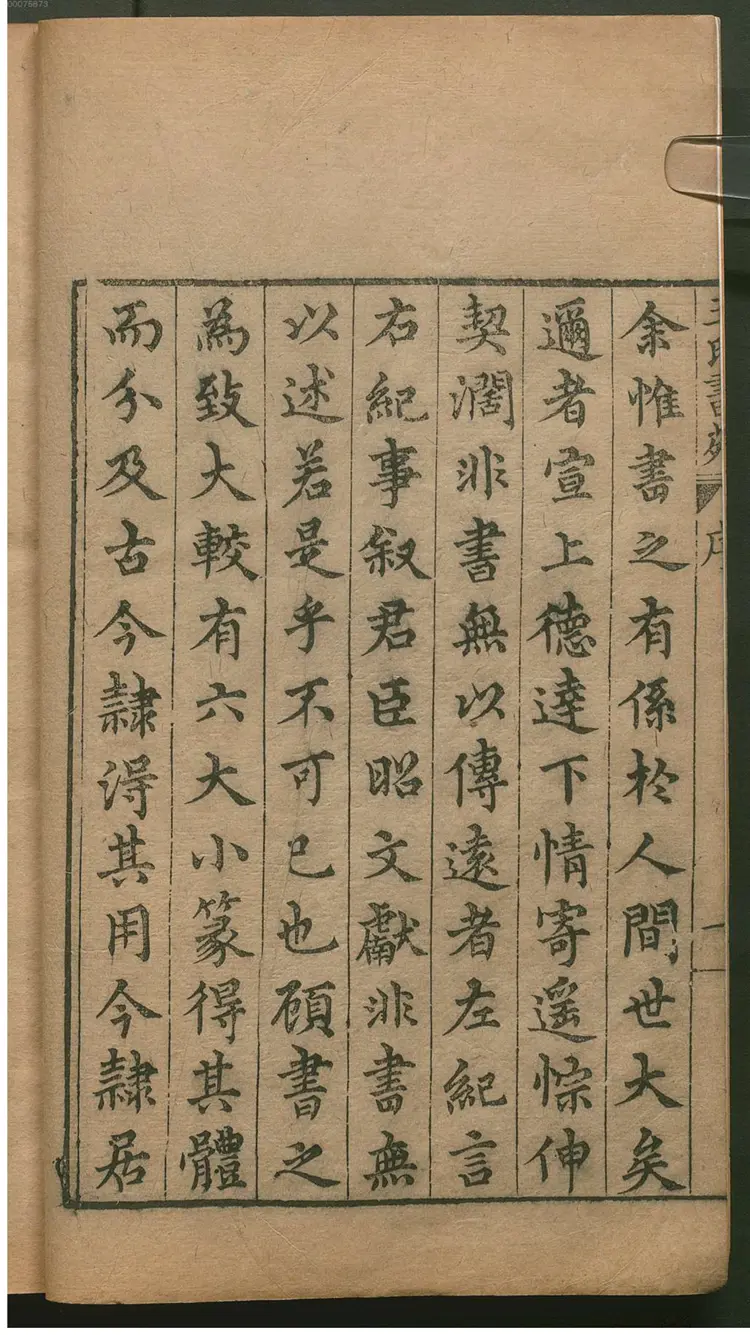 00075873
王氏書苑 序 一
余惟書之有係於人間世大矣
邇者宣上德達下情寄遥悰伸
契濶非書無以傳遠者左紀言
右紀事叙君臣昭文獻非書無
以述若是乎不可已也顧書之
為致大較有六大小篆得其體
而分及古今隷淂其用今隷居